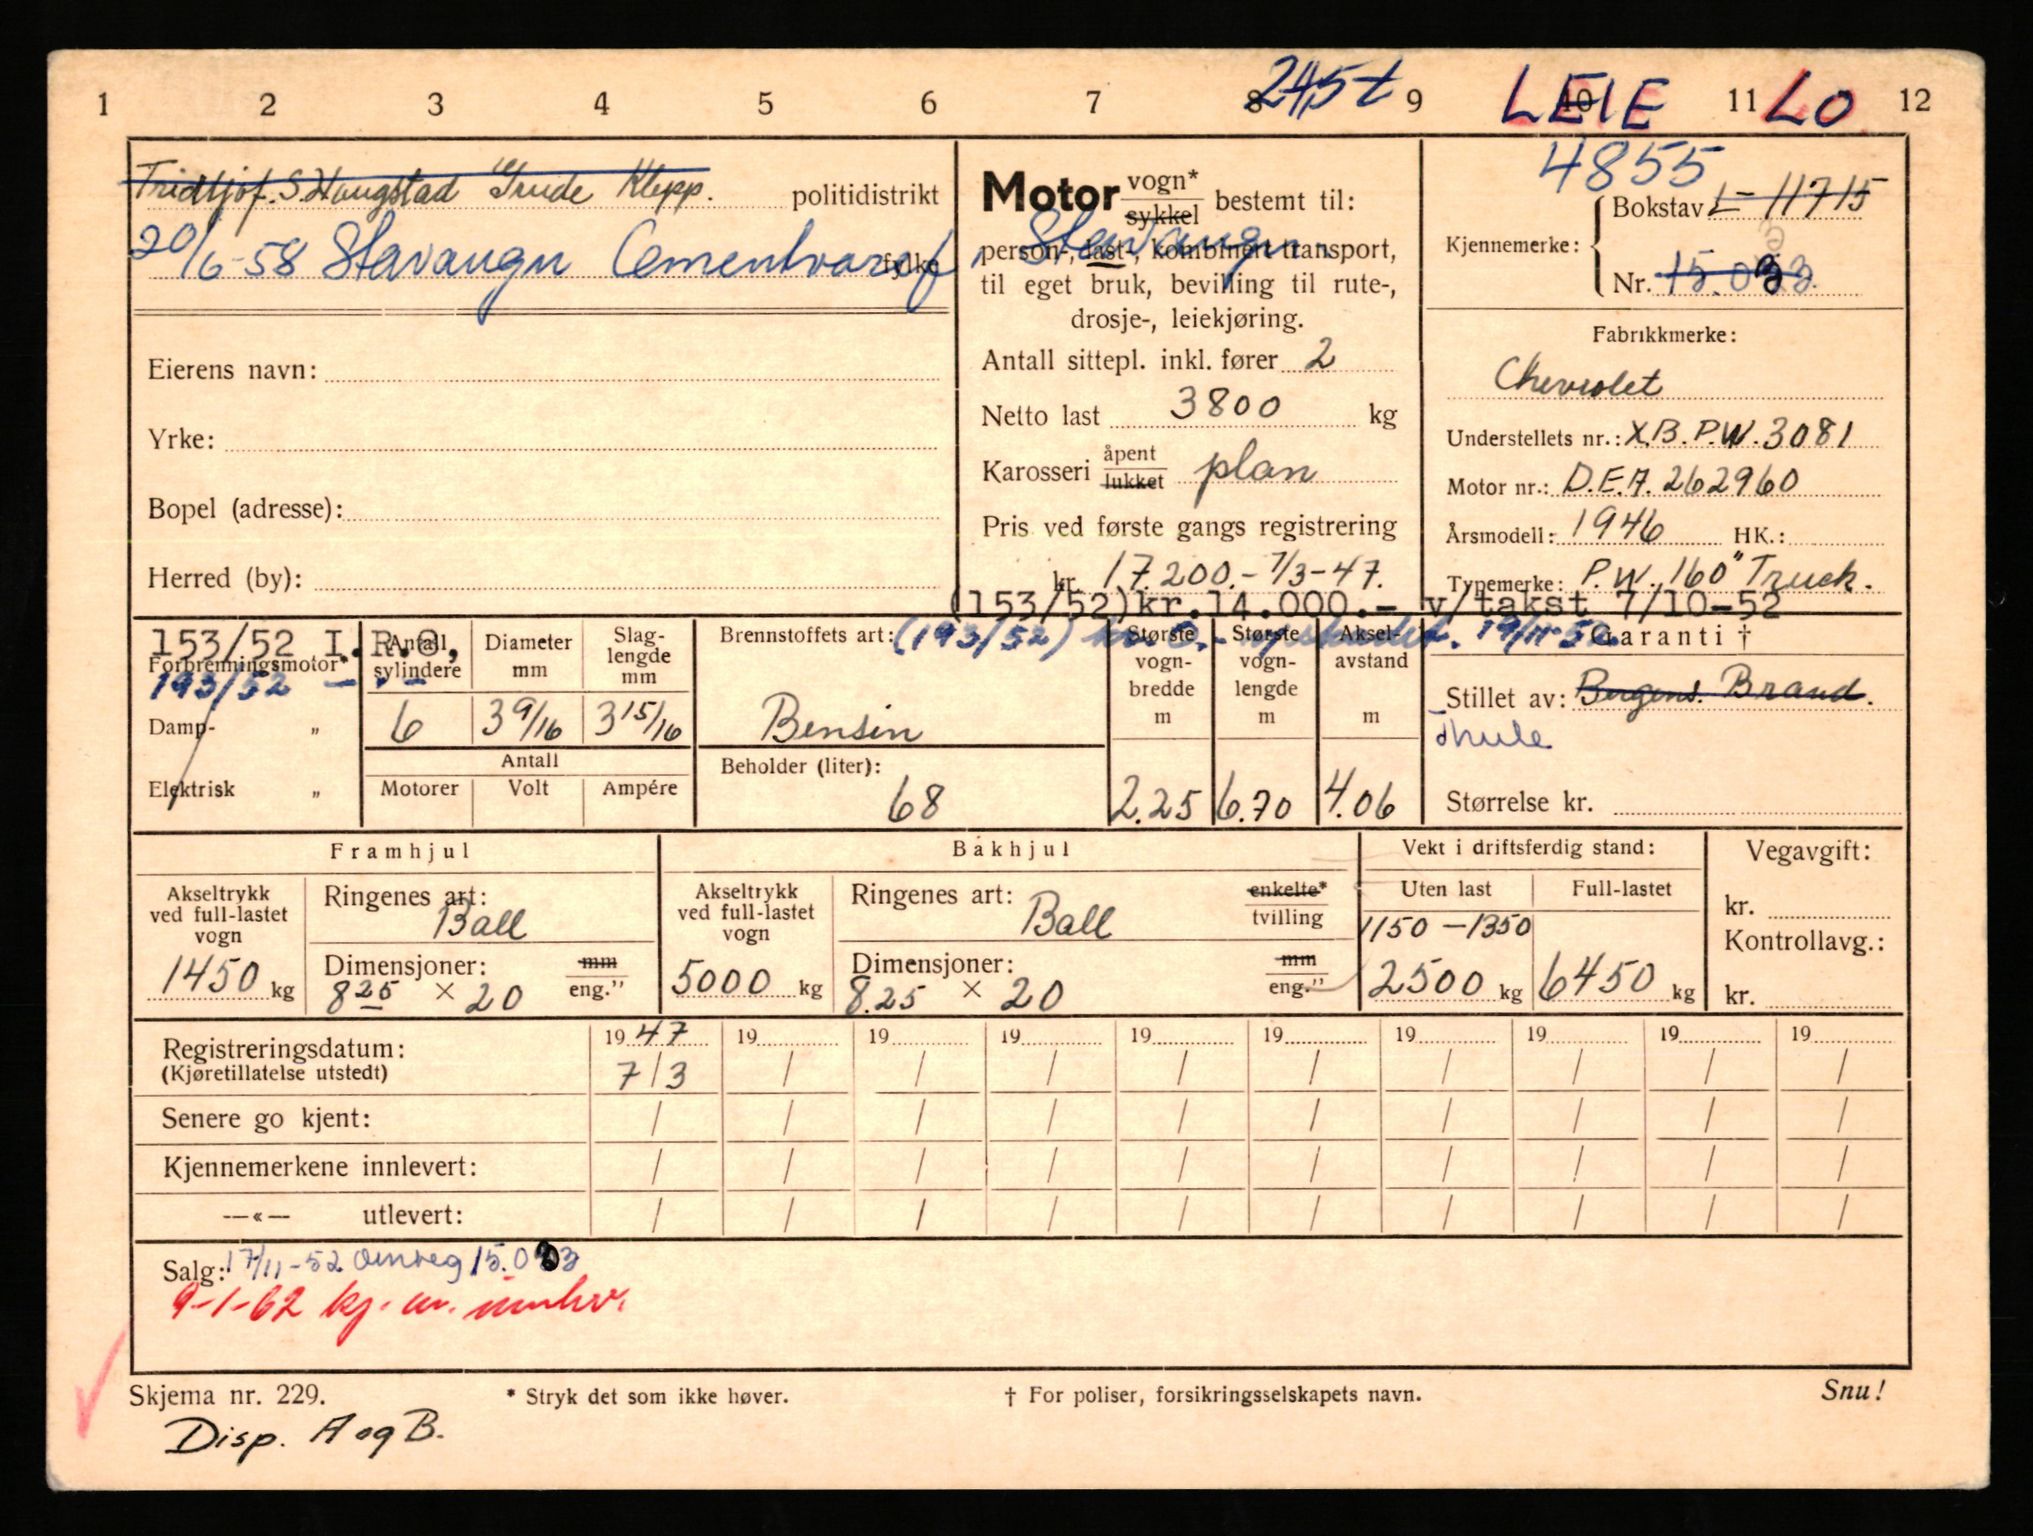 1 2 3 4 5 6 7 8 9 10 11 12
24,5 t LEIE LO
Fridtjof. S. Haugstad Grude Klepp. politidistrikt
20/6-58 Stavanger Cementvaref. Stavanger. fylke
Eierens navn:
Yrke:
Bopel (adresse):
Herred (by):
Motor vogn* sykkel bestemt til:
person-, last-, kombinert transport,
til eget bruk, bevilling til rute-,
drosje-, leiekjøring.
Antall sittepl. inkl. fører 2
Netto last 3800 kg
Karosseri åpent lukket plan
Pris ved første gangs registrering
kr. 17.200.- 7/3-47.
(153/52)kr.14.000.- v/takst 7/10-52
4855
Kjennemerke: Bokstav L- 11715
Nr. 15.033
Fabrikkmerke:
Chevrolet
Understellets nr.: X.B.P.W. 3081
Motor nr.: D.E.A. 262960
Årsmodell: 1946 HK.:
Typemerke: P.W. 160" Truck.
153/52 I.R.O.
Forbrenningsmotor*
193/52 - " -
Damp- "
Elektrisk "
Antall sylindere 6
Diameter mm 3 9/16
Slag-lengde mm 3 15/16
Antall
Motorer Volt Ampére
Brennstoffets art: (193/52) 19/11-52
Bensin
Beholder (liter):
68
Største vogn-bredde m 2.25
Største vogn-lengde m 6.70
Aksel-avstand m 4.06
Garanti †
Stillet av: Bergens. Brand.
Thule
Størrelse kr.
Framhjul
Akseltrykk ved full-lastet vogn
1450 kg
Ringenes art:
Ball
Dimensjoner: mm eng."
8.25 × 20
Bakhjul
Akseltrykk ved full-lastet vogn
5000 kg
Ringenes art: enkelte* tvilling
Ball
Dimensjoner: mm eng."
8.25 × 20
Vekt i driftsferdig stand:
Uten last Full-lastet
1150 - 1350
2500 kg 6450 kg
Vegavgift:
kr.
Kontrollavg.:
kr.
Registreringsdatum: 1947 19 19 19 19 19 19 19 19 19
(Kjøretillatelse utstedt) 7/3 / / / / / / / / /
Senere go kjent: / / / / / / / / / /
Kjennemerkene innlevert: / / / / / / / / / /
—«— utlevert: / / / / / / / / / /
Salg: 17/11-52 Omreg 15.033
9-1-62 kj. m. innlev.
Skjema nr. 229. * Stryk det som ikke høver. † For poliser, forsikringsselskapets navn. Snu!
Disp. A og B.